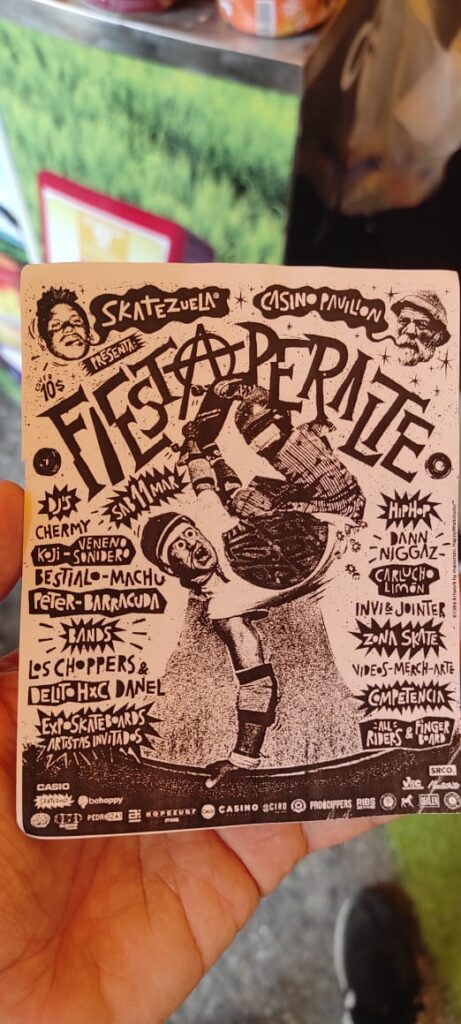 SKATEZUELA
CASINO PAVILION
PRESENTA:
10$
FIESTA PERALTE
SAB 11 MAR
DJ'S
CHERMY
KOJI - VENENO
SONIDERO
BESTIALO - MACHU
PETER - BARRACUDA
BANDS
LOS CHOPPERS &
DELITO HXC DANEL
EXPO SKATEBOARDS
ARTISTAS INVITADOS
HIPHOP
DANN
NIGGAZ
CARLUCHO
LIMÓN
INVI & JOINTER
ZONA SKATE
VIDEOS - MERCH - ARTE
COMPETENCIA
ALL
RIDERS & FINGER
BOARD
CASIO
SRCO.
behappy
PEDROZA!
ROPESURF
STORE
CASINO
PROCLIPPERS
RIBS